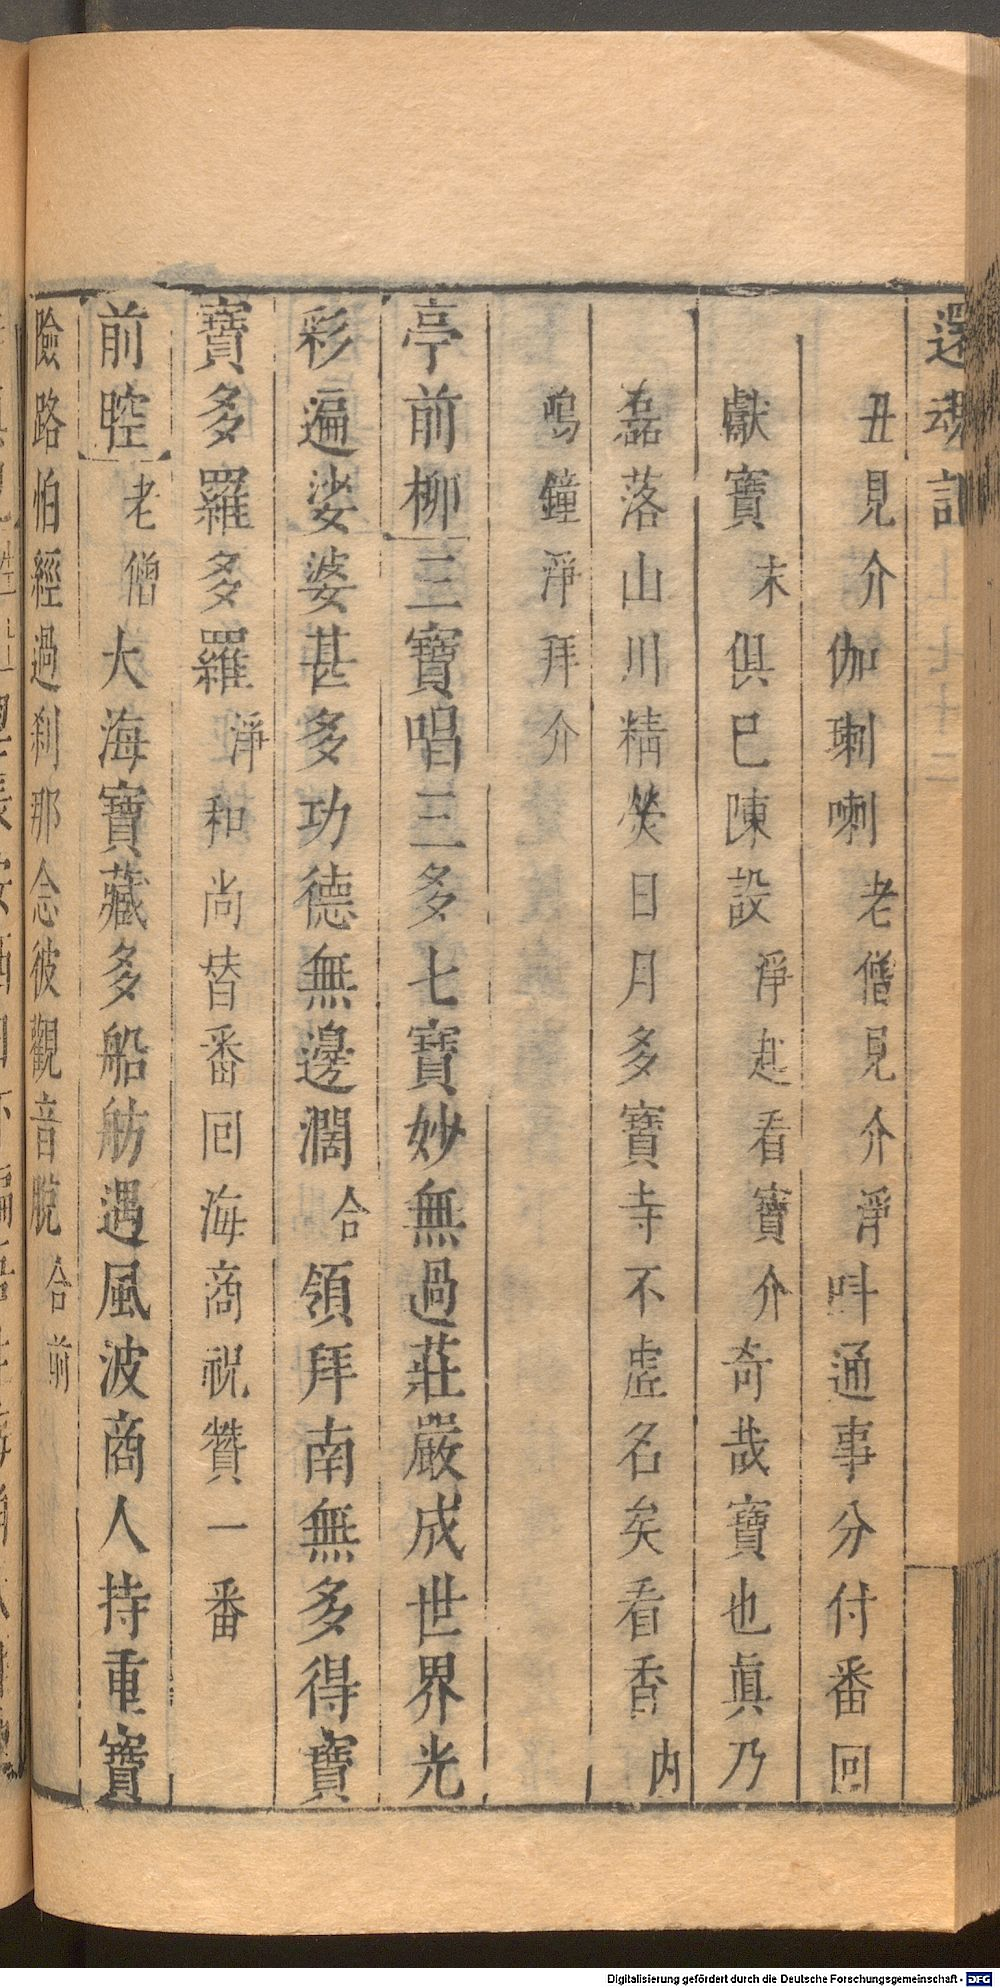 還魂記
丑見介伽喇喇老僧見介淨呌通事分付番回
獻寶末俱巳陳設淨起看寶介奇哉寶也眞乃
磊落山川精熒日月多寶寺不虛名矣看香內
鳴鐘淨拜介
亭前柳三寶唱三多七寶妙無過莊嚴成世界光
彩遍娑婆甚多功德無邊濶合領拜南無多得寶
寶多羅多羅淨和尚替番回海商祝贊一番
前腔老僧大海寶藏多船舫遇風波商人持重寶
險路怕經過剎那念彼觀音脫合前
Digitalisierung gefördert durch die Deutsche Forschungsgemeinschaft - DFG